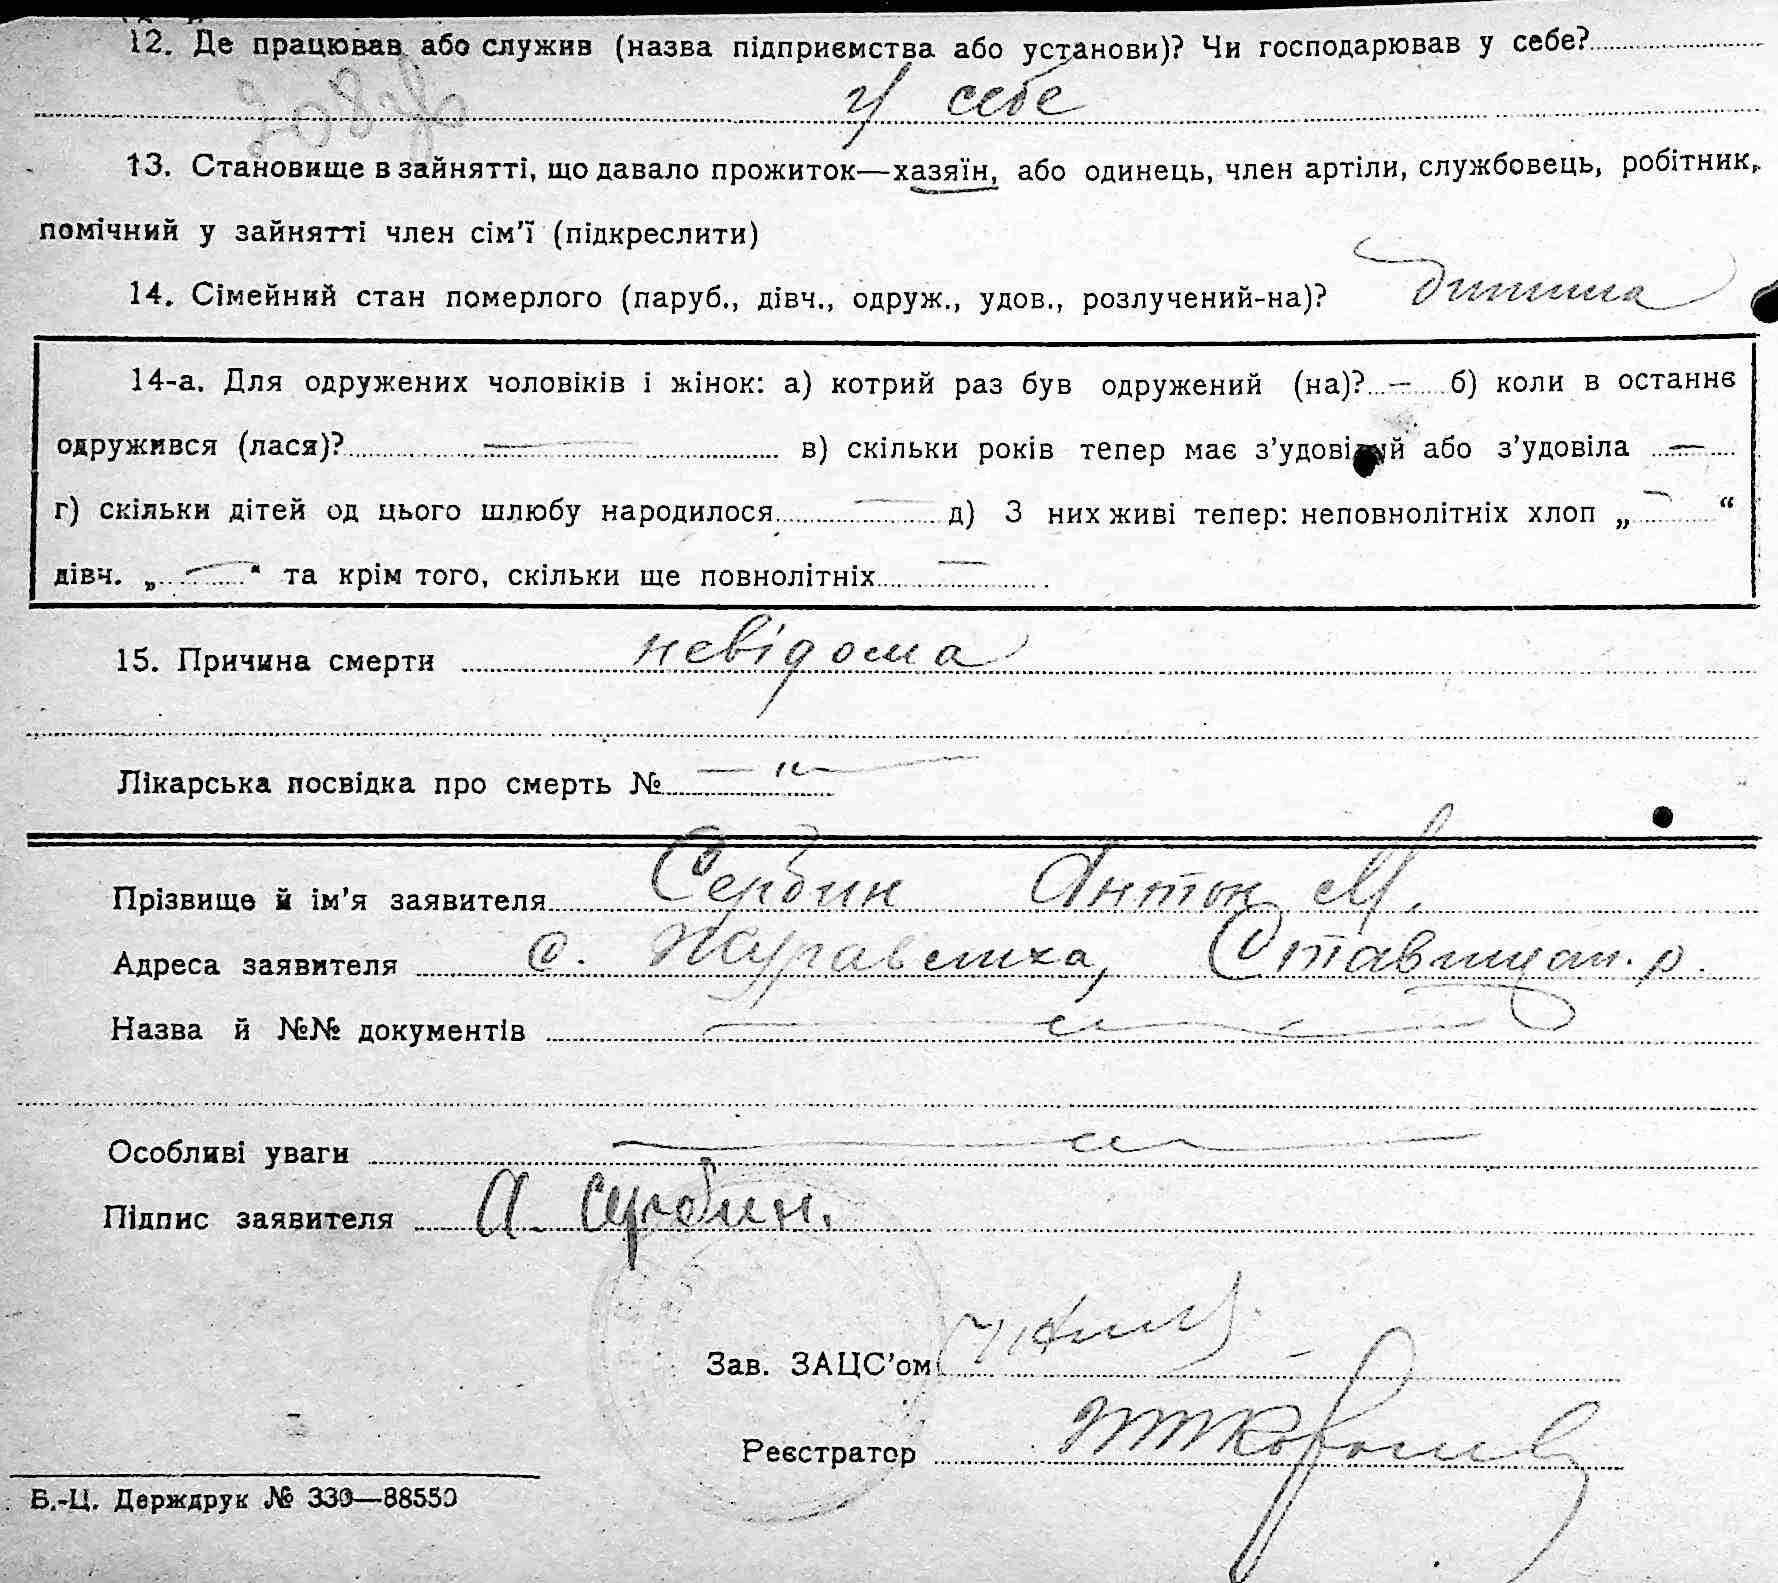 12. Де працював або служив (назва підприємства або установи)? Чи господарював у себе?
у себе
13. Становище в зайнятті, що давало прожиток—хазяїн, або одинець, член артіли, службовець, робітник,
помічний у зайнятті член сім'ї (підкреслити)
14. Сімейний стан померлого (паруб., дівч., одруж., удов., розлучений-на)? дитина
14-а. Для одружених чоловіків і жінок: а) котрий раз був одружений (на)? — б) коли в останнє
одружився (лася)? — в) скільки років тепер має з'удовілий або з'удовіла —
г) скільки дітей од цього шлюбу народилося — д) З них живі тепер: неповнолітніх хлоп „ — “
дівч. „ — “ та крім того, скільки ще повнолітніх —
15. Причина смерти невідома
Лікарська посвідка про смерть № — " —
Прізвище й ім'я заявителя Сербин Антон М.
Адреса заявителя с. Журавлиха, Ставищан. р.
Назва й №№ документів — " —
Особливі уваги — " —
Підпис заявителя А. Сербин.
Зав. ЗАЦС'ом
Реєстратор
Б.-Ц. Держдрук № 330—88550